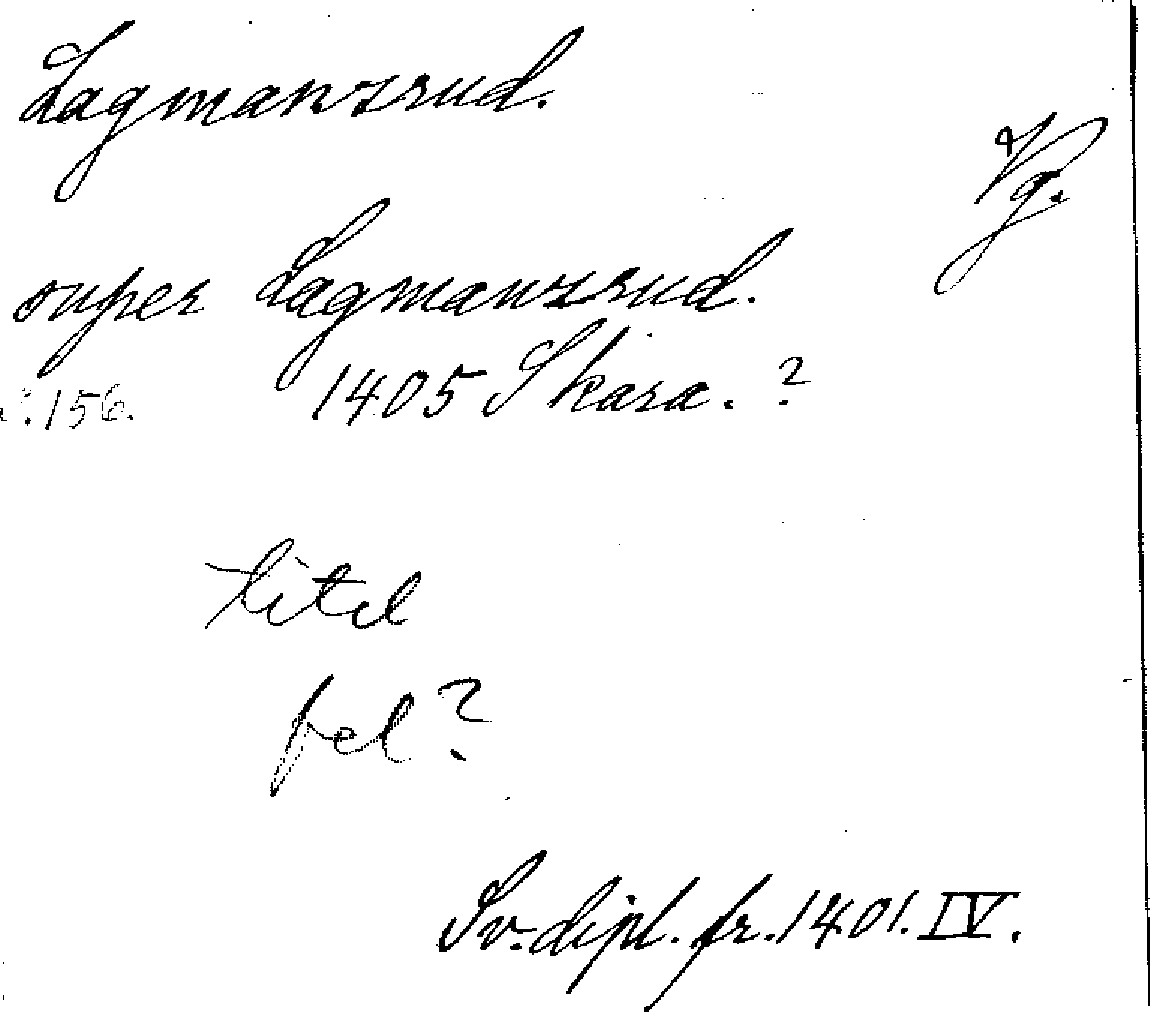 Lagmanszrud.
Vg.
super Lagmanszrud.
:156. 1405 Skara. ?
titel
fel?
Sv. dipl. fr. 1401. IV.